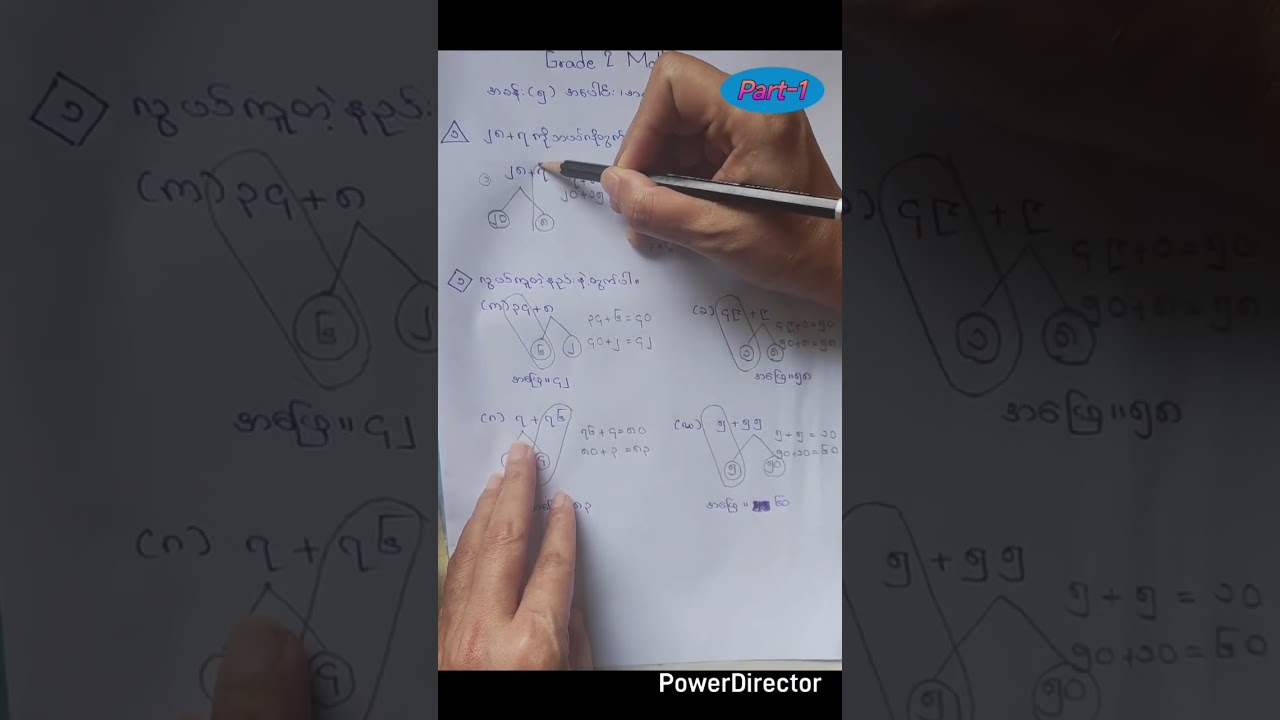 Grade 2 Ma
Part-1
အခန်း (၅) အပေါင်း၊
၁ ၂၈+၇ ကို ဘယ်လိုတွက်
၂၈+၇
၂၀+၁၅
၂၀ ၈
၁ လွယ်ကူတဲ့နည်းနဲ့တွက်ပါ။
(က) ၃၄+၈
၃၄+၆=၄၀
၄၀+၂=၄၂
၆ ၂
အဖြေ။ ၄၂
(ခ) ၄၉+၉
၄၉+၁=၅၀
၅၀+၈=၅၈
၁ ၈
အဖြေ။ ၅၈
(ဂ) ၇+၇၆
၇၆+၄=၈၀
၈၀+၃=၈၃
၄
၈၃
(ဃ) ၅+၅၅
၅+၅=၁၀
၅၀+၁၀=၆၀
၅ ၅၀
အဖြေ။ ၆၀
PowerDirector